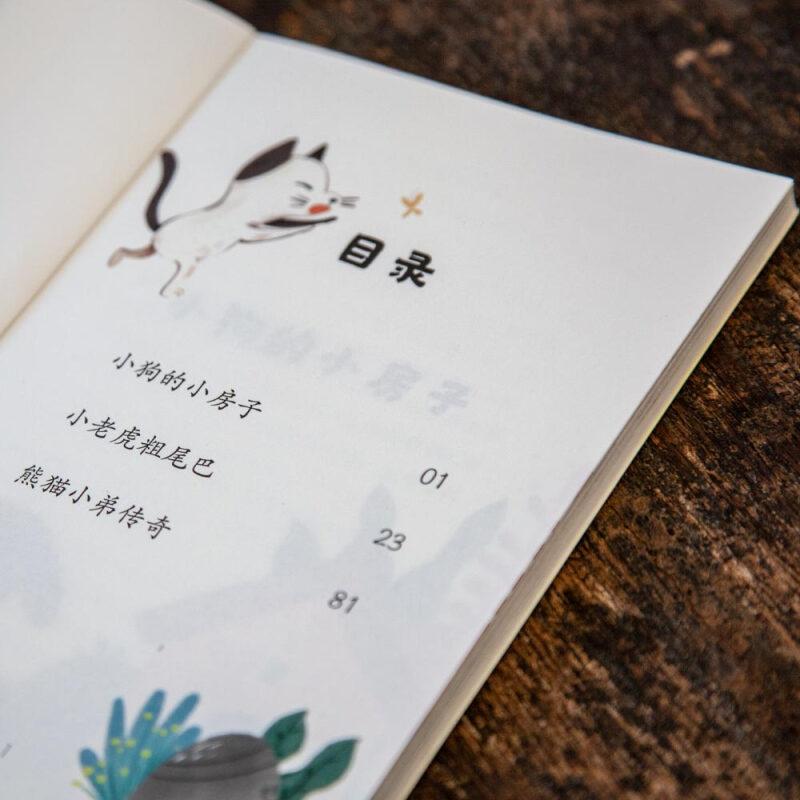 目录
小狗的小房子
01
小老虎粗尾巴
23
熊猫小弟传奇
81
小狗的小房子